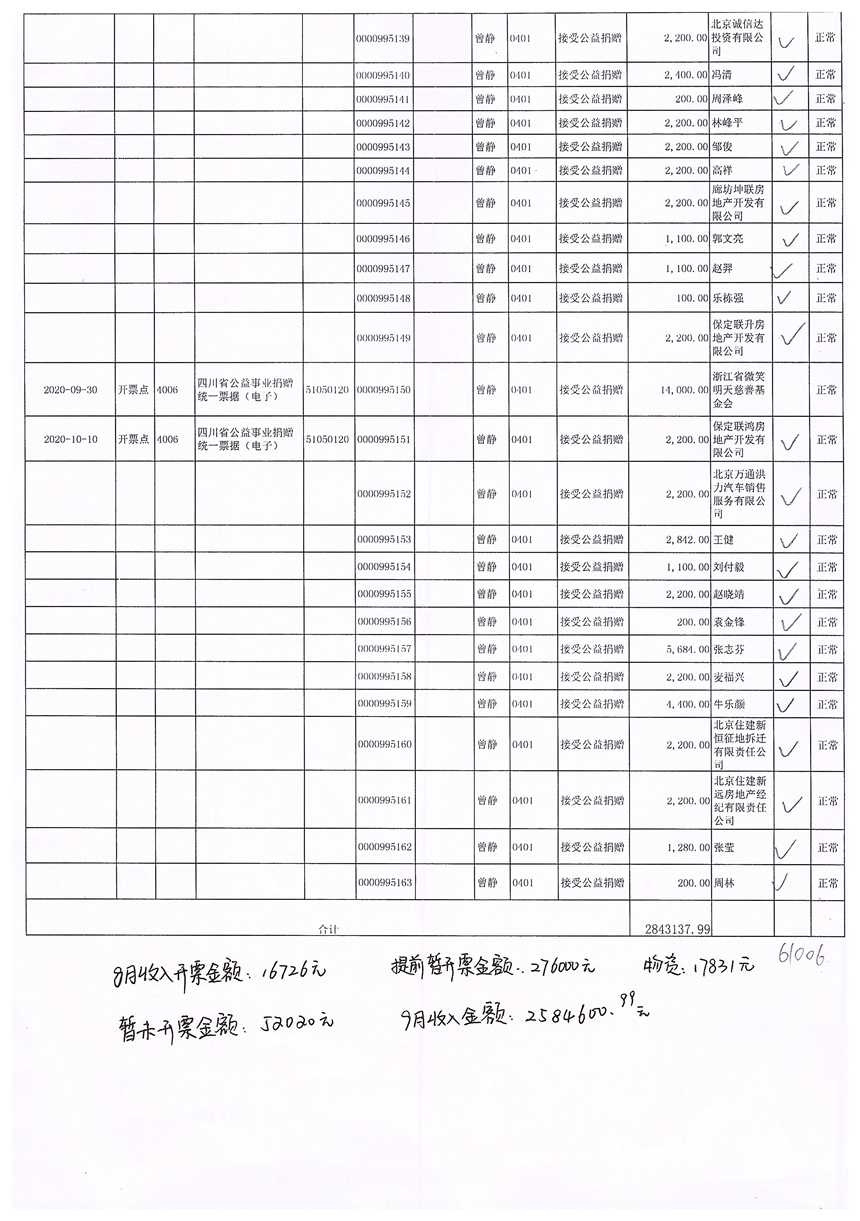 0000995139 曾静 0401 接受公益捐赠 2,200.00 北京诚信达投资有限公司 正常
0000995140 曾静 0401 接受公益捐赠 2,400.00 冯清 正常
0000995141 曾静 0401 接受公益捐赠 200.00 周泽峰 正常
0000995142 曾静 0401 接受公益捐赠 2,200.00 林峰平 正常
0000995143 曾静 0401 接受公益捐赠 2,200.00 邹俊 正常
0000995144 曾静 0401 接受公益捐赠 2,200.00 高祥 正常
0000995145 曾静 0401 接受公益捐赠 2,200.00 廊坊坤联房地产开发有限公司 正常
0000995146 曾静 0401 接受公益捐赠 1,100.00 郭文亮 正常
0000995147 曾静 0401 接受公益捐赠 1,100.00 赵羿 正常
0000995148 曾静 0401 接受公益捐赠 100.00 乐栋强 正常
0000995149 曾静 0401 接受公益捐赠 2,200.00 保定联升房地产开发有限公司 正常
2020-09-30 开票点 4006 四川省公益事业捐赠统一票据（电子） 51050120 0000995150 曾静 0401 接受公益捐赠 14,000.00 浙江省微笑明天慈善基金会 正常
2020-10-10 开票点 4006 四川省公益事业捐赠统一票据（电子） 51050120 0000995151 曾静 0401 接受公益捐赠 2,200.00 保定联鸿房地产开发有限公司 正常
0000995152 曾静 0401 接受公益捐赠 2,200.00 北京万通洪力汽车销售服务有限公司 正常
0000995153 曾静 0401 接受公益捐赠 2,842.00 王健 正常
0000995154 曾静 0401 接受公益捐赠 1,100.00 刘付毅 正常
0000995155 曾静 0401 接受公益捐赠 2,200.00 赵晓靖 正常
0000995156 曾静 0401 接受公益捐赠 200.00 袁金锋 正常
0000995157 曾静 0401 接受公益捐赠 5,684.00 张志芬 正常
0000995158 曾静 0401 接受公益捐赠 2,200.00 安福兴 正常
0000995159 曾静 0401 接受公益捐赠 4,400.00 牛乐颜 正常
0000995160 曾静 0401 接受公益捐赠 2,200.00 北京住建新恒征地拆迁有限责任公司 正常
0000995161 曾静 0401 接受公益捐赠 2,200.00 北京住建新远房地产经纪有限责任公司 正常
0000995162 曾静 0401 接受公益捐赠 1,280.00 张莹 正常
0000995163 曾静 0401 接受公益捐赠 200.00 周林 正常
合计 2843137.99
8月收入开票金额：16726元 提前暂开票金额：276000元 物资：17831元 61006
暂未开票金额：52020元 9月收入金额：2584600.99元